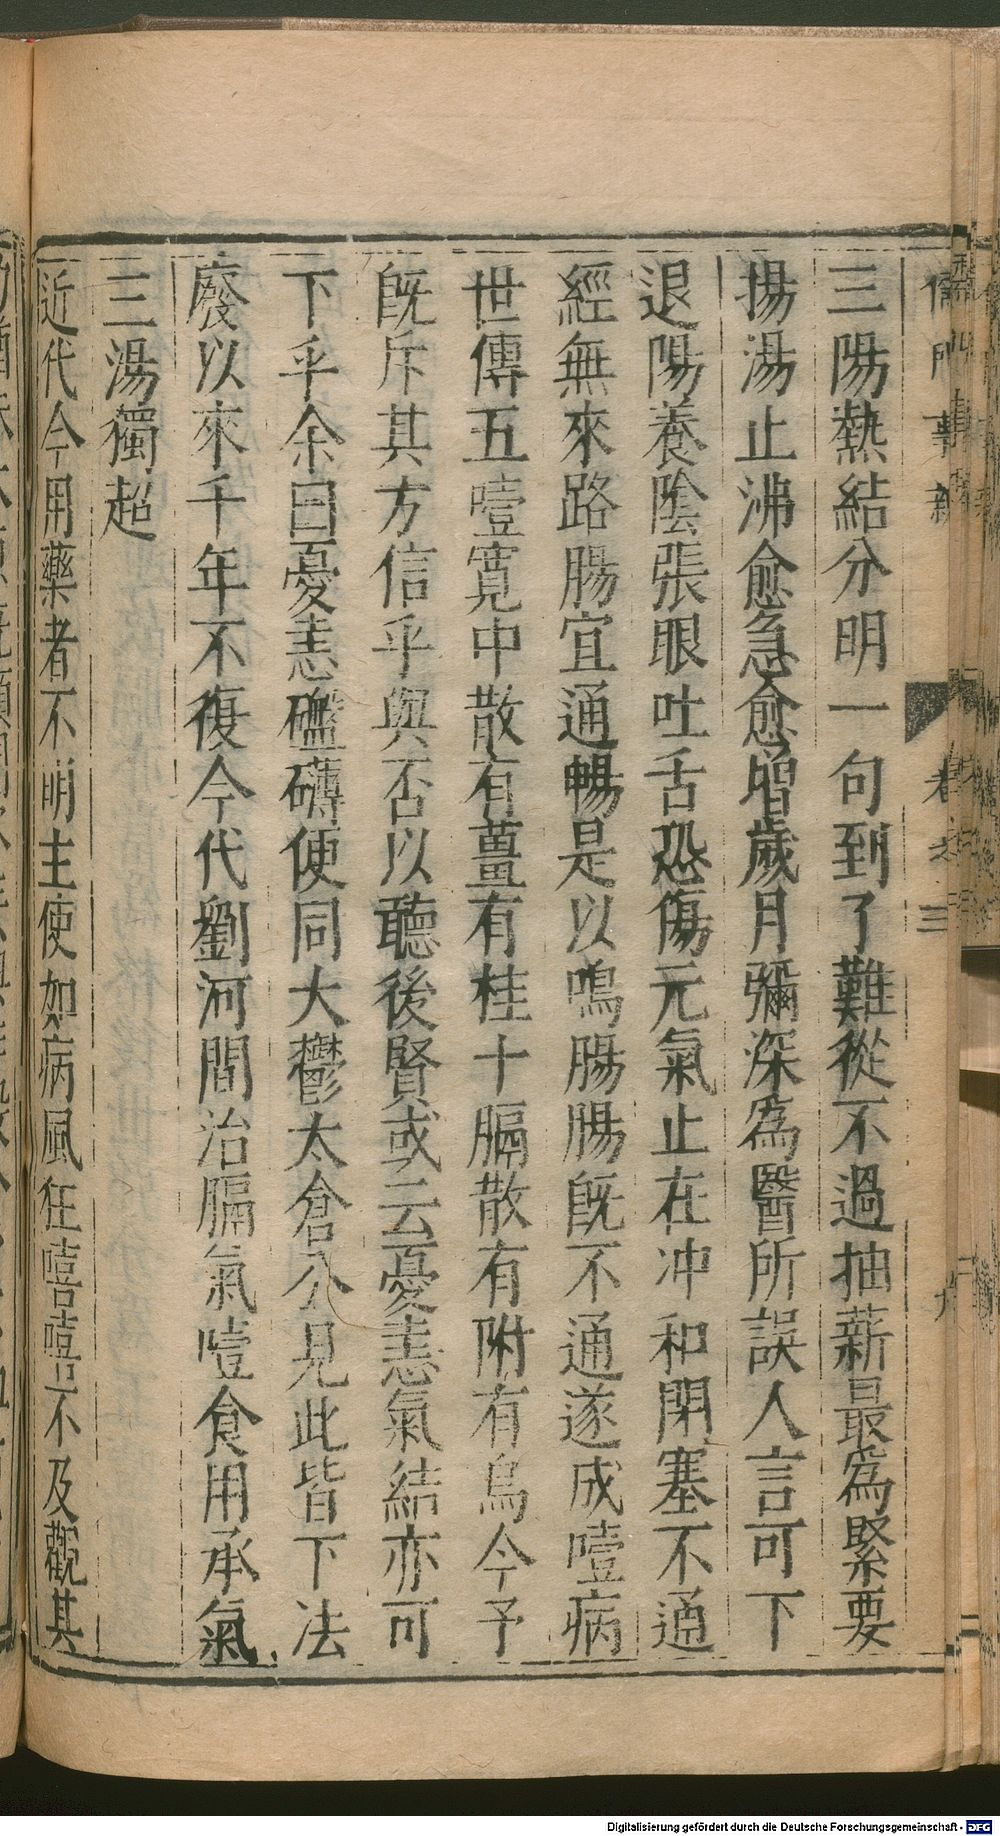 儒門事親 卷之三 九
三陽熱結分明一句到了難從不過抽薪最為緊要
揚湯止沸愈急愈增歲月彌深為醫所誤人言可下
退陽養陰張眼吐舌恐傷元氣止在冲和閉塞不通
經無來路腸宜通暢是以鳴腸腸既不通遂成噎病
世傳五噎寬中散有薑有桂十膈散有附有烏今予
既斥其方信乎與否以聽後賢或云憂恚氣結亦可
下乎余曰憂恚磕礴便同大鬱太倉公見此皆下法
廢以來千年不復今代劉河間治膈氣噎食用承氣
三湯獨超
近代今用藥者不明主使如病風狂嘻嘻不及觀其
Digitalisierung gefördert durch die Deutsche Forschungsgemeinschaft - DFG